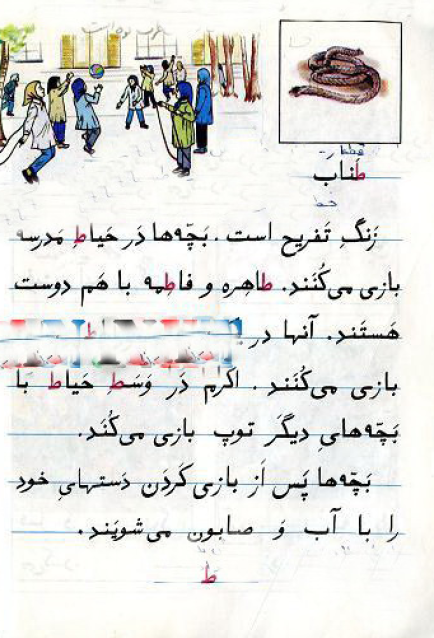 طناب
زَنگِ تَفریح است. بَچّه‌ها دَر حَیاطِ مَدرسه
بازی می‌کُنَند. طاهِره و فاطِمه با هَم دوست
هَستَند. آنها در
بازی می‌کُنَند. اَکرَم دَر وَسَطِ حَیاط با
بَچّه‌هایِ دیگَر توپ بازی می‌کُنَد.
بَچّه‌ها پَس اَز بازی کَردَن دَستهایِ خود
را با آب وَ صابون می‌شویَند.
ط